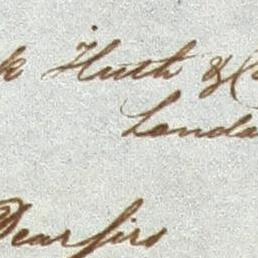 k Huth & Co
London
Dear Sirs